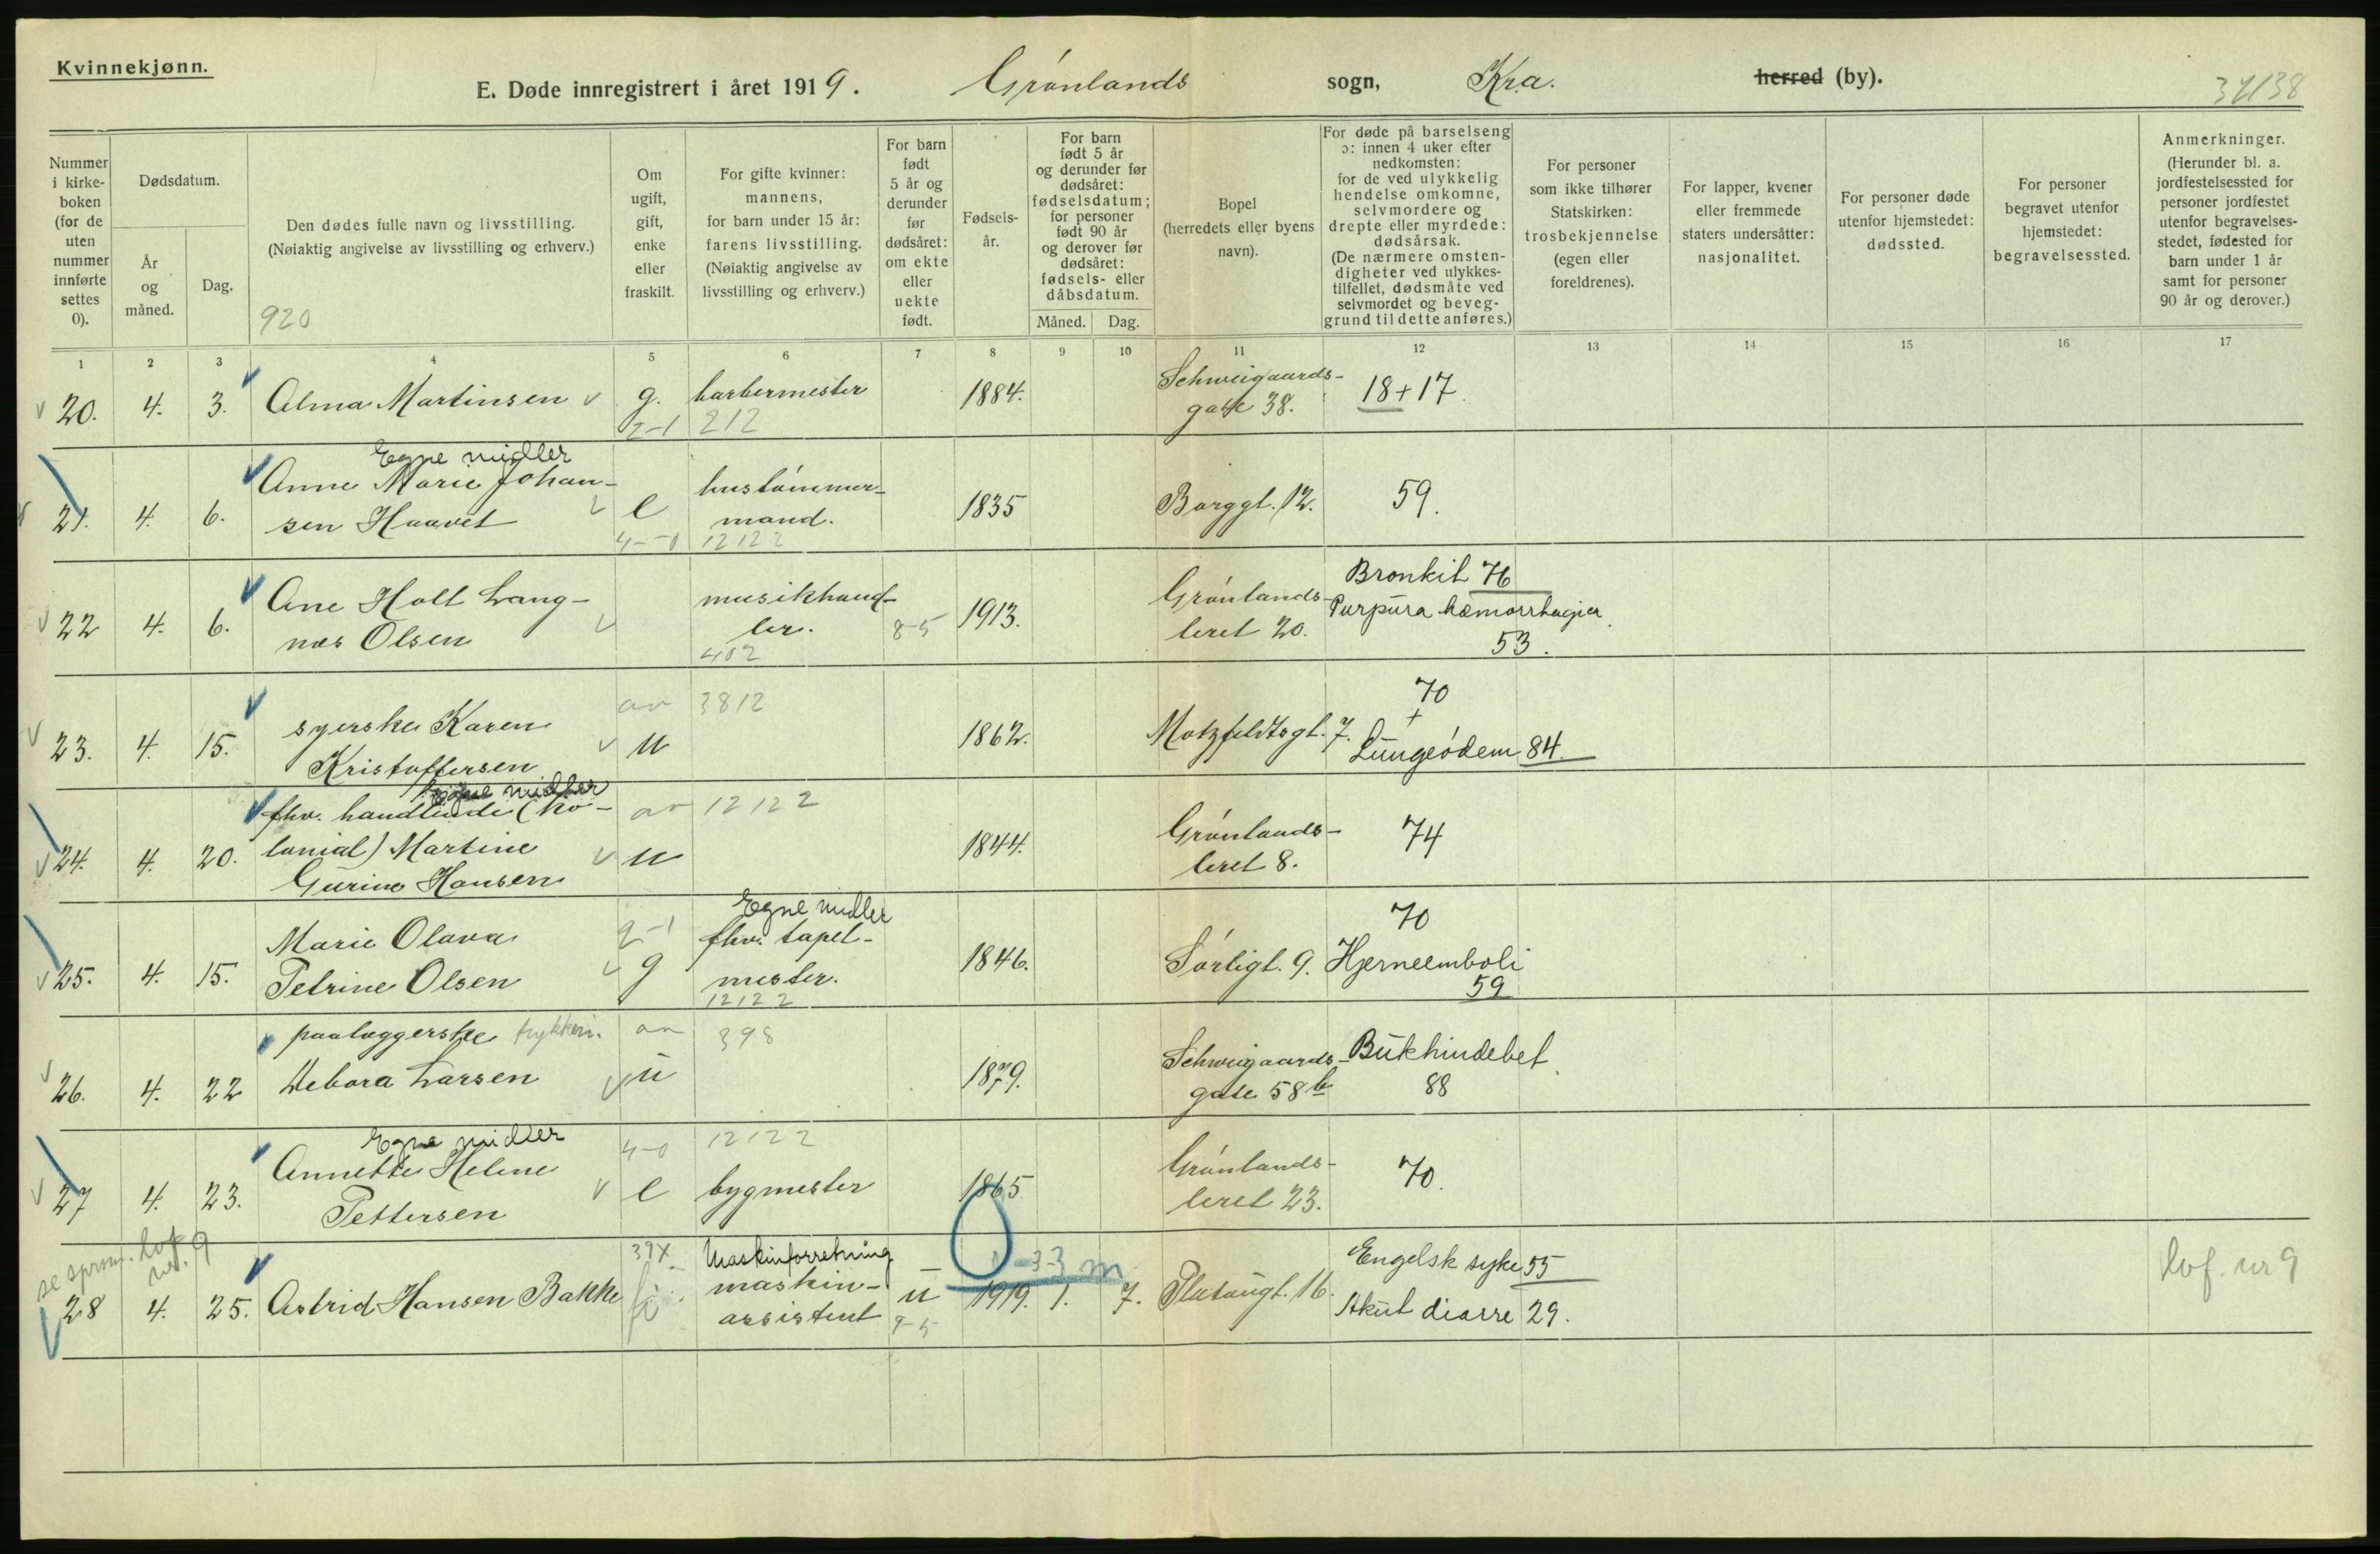 Kvinnekjønn.
E. Døde innregistrert i året 1919. Grønlands sogn, Kra. herred (by).
Nummer i kirkeboken (for de uten nummer innførte settes 0).
Dødsdatum.
År og måned.
Dag.
Den dødes fulle navn og livsstilling.
(Nøiaktig angivelse av livsstilling og erhverv.)
920
Om ugift, gift, enke eller fraskilt.
For gifte kvinner: mannens, for barn under 15 år: farens livsstilling. (Nøiaktig angivelse av livsstilling og erhverv.)
For barn født 5 år og derunder før dødsåret: om ekte eller uekte født.
Fødselsår.
For barn født 5 år og derunder før dødsåret: fødselsdatum; for personer født 90 år og derover før dødsåret: fødsels- eller dåbsdatum.
Måned. Dag.
Bopel (herredets eller byens navn).
For døde på barselseng ɔ: innen 4 uker efter nedkomsten: for de ved ulykkelig hendelse omkomne, selvmordere og drepte eller myrdede: dødsårsak. (De nærmere omstendigheter ved ulykkestilfellet, dødsmåte ved selvmordet og beveggrund til dette anføres.)
For personer som ikke tilhører Statskirken: trosbekjennelse (egen eller foreldrenes).
For lapper, kvener eller fremmede staters undersåtter: nasjonalitet.
For personer døde utenfor hjemstedet: dødssted.
For personer begravet utenfor hjemstedet: begravelsessted.
Anmerkninger. (Herunder bl. a. jordfestelsessted for personer jordfestet utenfor begravelsesstedet, fødested for barn under 1 år samt for personer 90 år og derover.)
1 2 3 4 5 6 7 8 9 10 11 12 13 14 15 16 17
20. 4. 3. Alma Martinsen g. barbermester 1884. Schweigaards-
gate 38. 18+17.
2-1 212
Egne midler
21. 4. 6. Anne Marie Johan-
sen Haavet e hustømmer-
mand. 1835 Borggt. 12. 59.
4-0 12122
22 4. 6. Ane Holt Lang-
næs Olsen musikhand-
ler. 8-5 1913. Grønlands-
leret 20. Bronkit 76
Purpura hæmorrhagica
53.
402
23. 4. 15. syerske Karen
Kristoffersen av 3812
u 1862. Motzfeldtsgt. 7. 70
+
Lungeødem 84.
Egne midler
24. 4. 20. fhv. handlende (ko-
lonial) Martine
Gurine Hansen av 12122
u 1844. Grønlands-
leret 8. 74
25. 4. 15. Marie Olava
Petrine Olsen 2-1
g Egne midler
fhv. tapet-
mester.
12122 1846. Sørligt. 9. 70
Hjerneemboli
59
26. 4. 22 paalæggerske trykkeri.
Debora Larsen av 398
u 1879. Schweigaards-
gate 58b Bukhindebet.
88
Egne midler
27 4. 23. Annette Helene
Pettersen 4-0 12122
e bygmester 1865 Grønlands-
leret 23. 70.
se spørsm. lof. nr. 9
28 4. 25. Astrid Hansen Bakke 39x Maskinforretning
maskin-
assistent u
9-5 3 m
1919. 1. 7. Platougt. 16. Engelsk syke 55
Akut diarre 29.
lof. nr 9